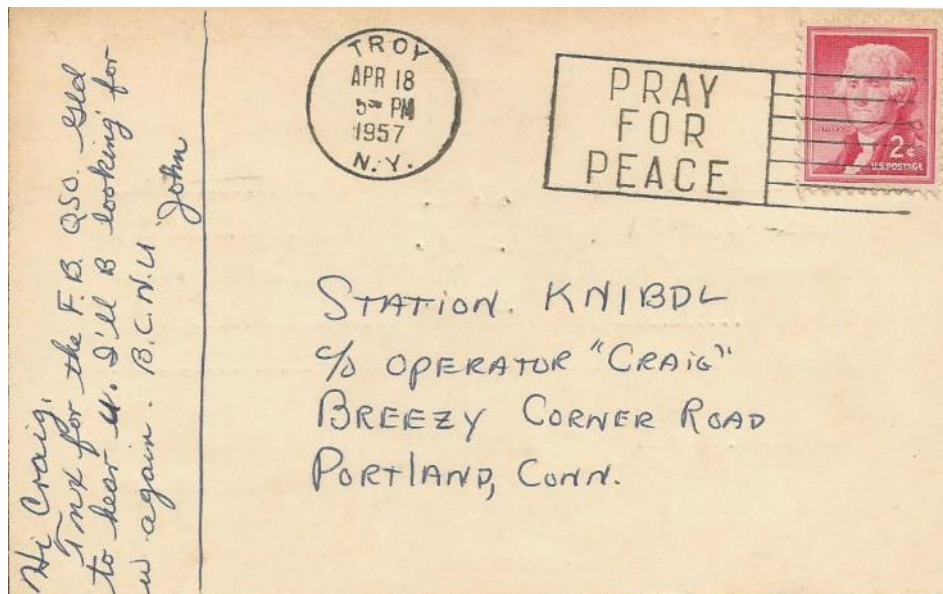 Hi Craig,
Tnx for the F.B. QSO. Gld
to hear u. I'll B looking for
u again. B.C.N.U
John
TROY
APR 18
5 PM
1957
N.Y.
PRAY
FOR
PEACE
2¢
U.S. POSTAGE
STATION. KN1BDL
c/o OPERATOR "CRAIG"
BREEZY CORNER ROAD
PORTLAND, CONN.